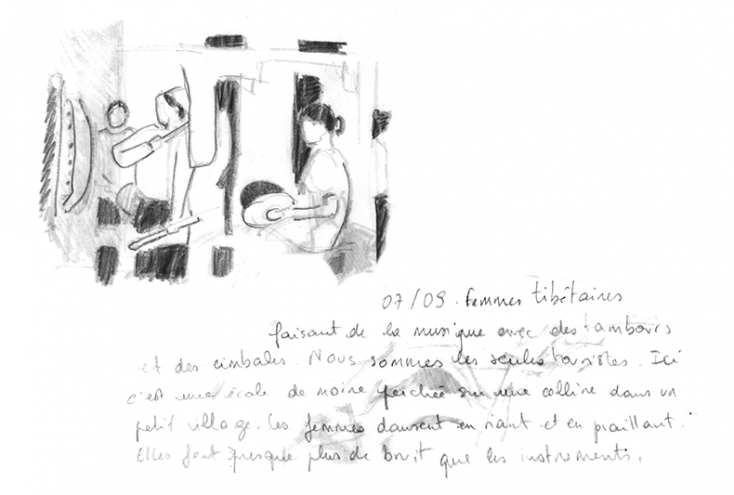 07/09. femmes tibétaines
faisant de la musique avec des tambours
et des cimbales. Nous sommes les seules touristes. Ici
c'est une école de moine perchée sur une colline dans un
petit village. Les femmes dansent en riant et en piaillant.
Elles font presque plus de bruit que les instruments.